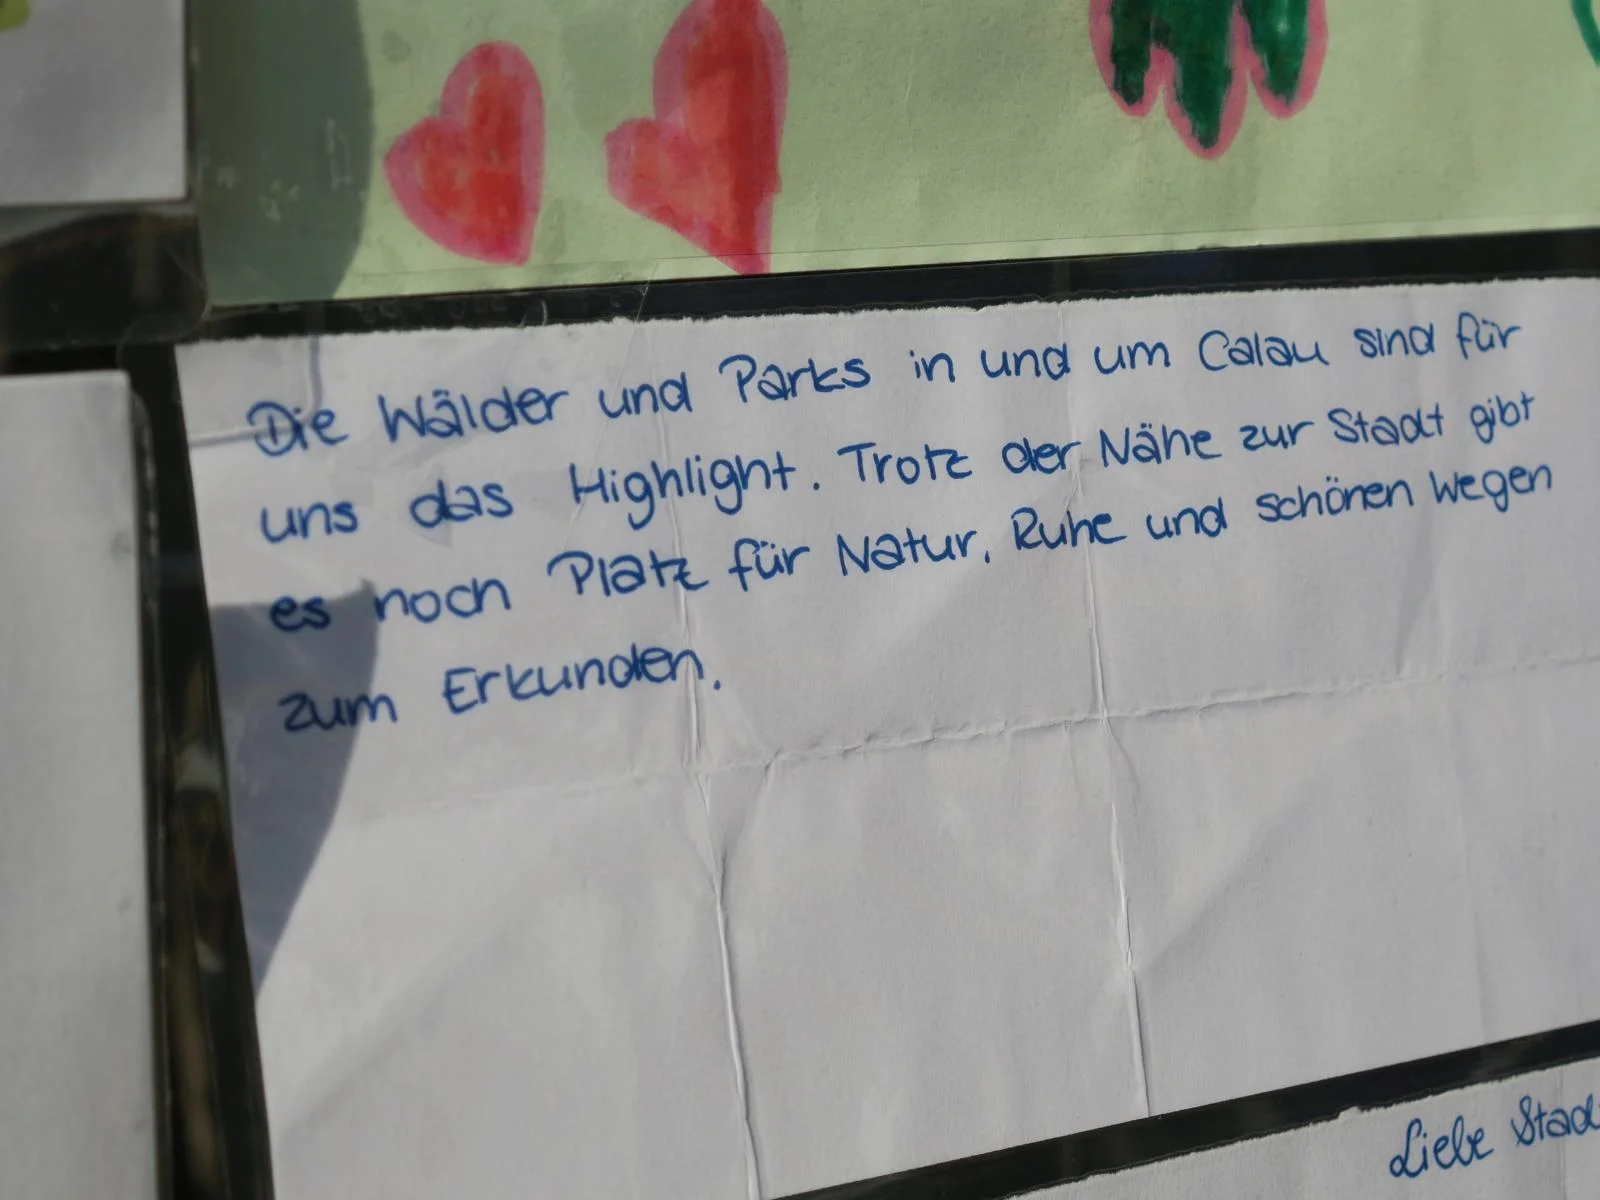 Die Wälder und Parks in und um Calau sind für
uns das Highlight. Trotz der Nähe zur Stadt gibt
es noch Platz für Natur, Ruhe und schönen Wegen
zum Erkunden.
Liebe